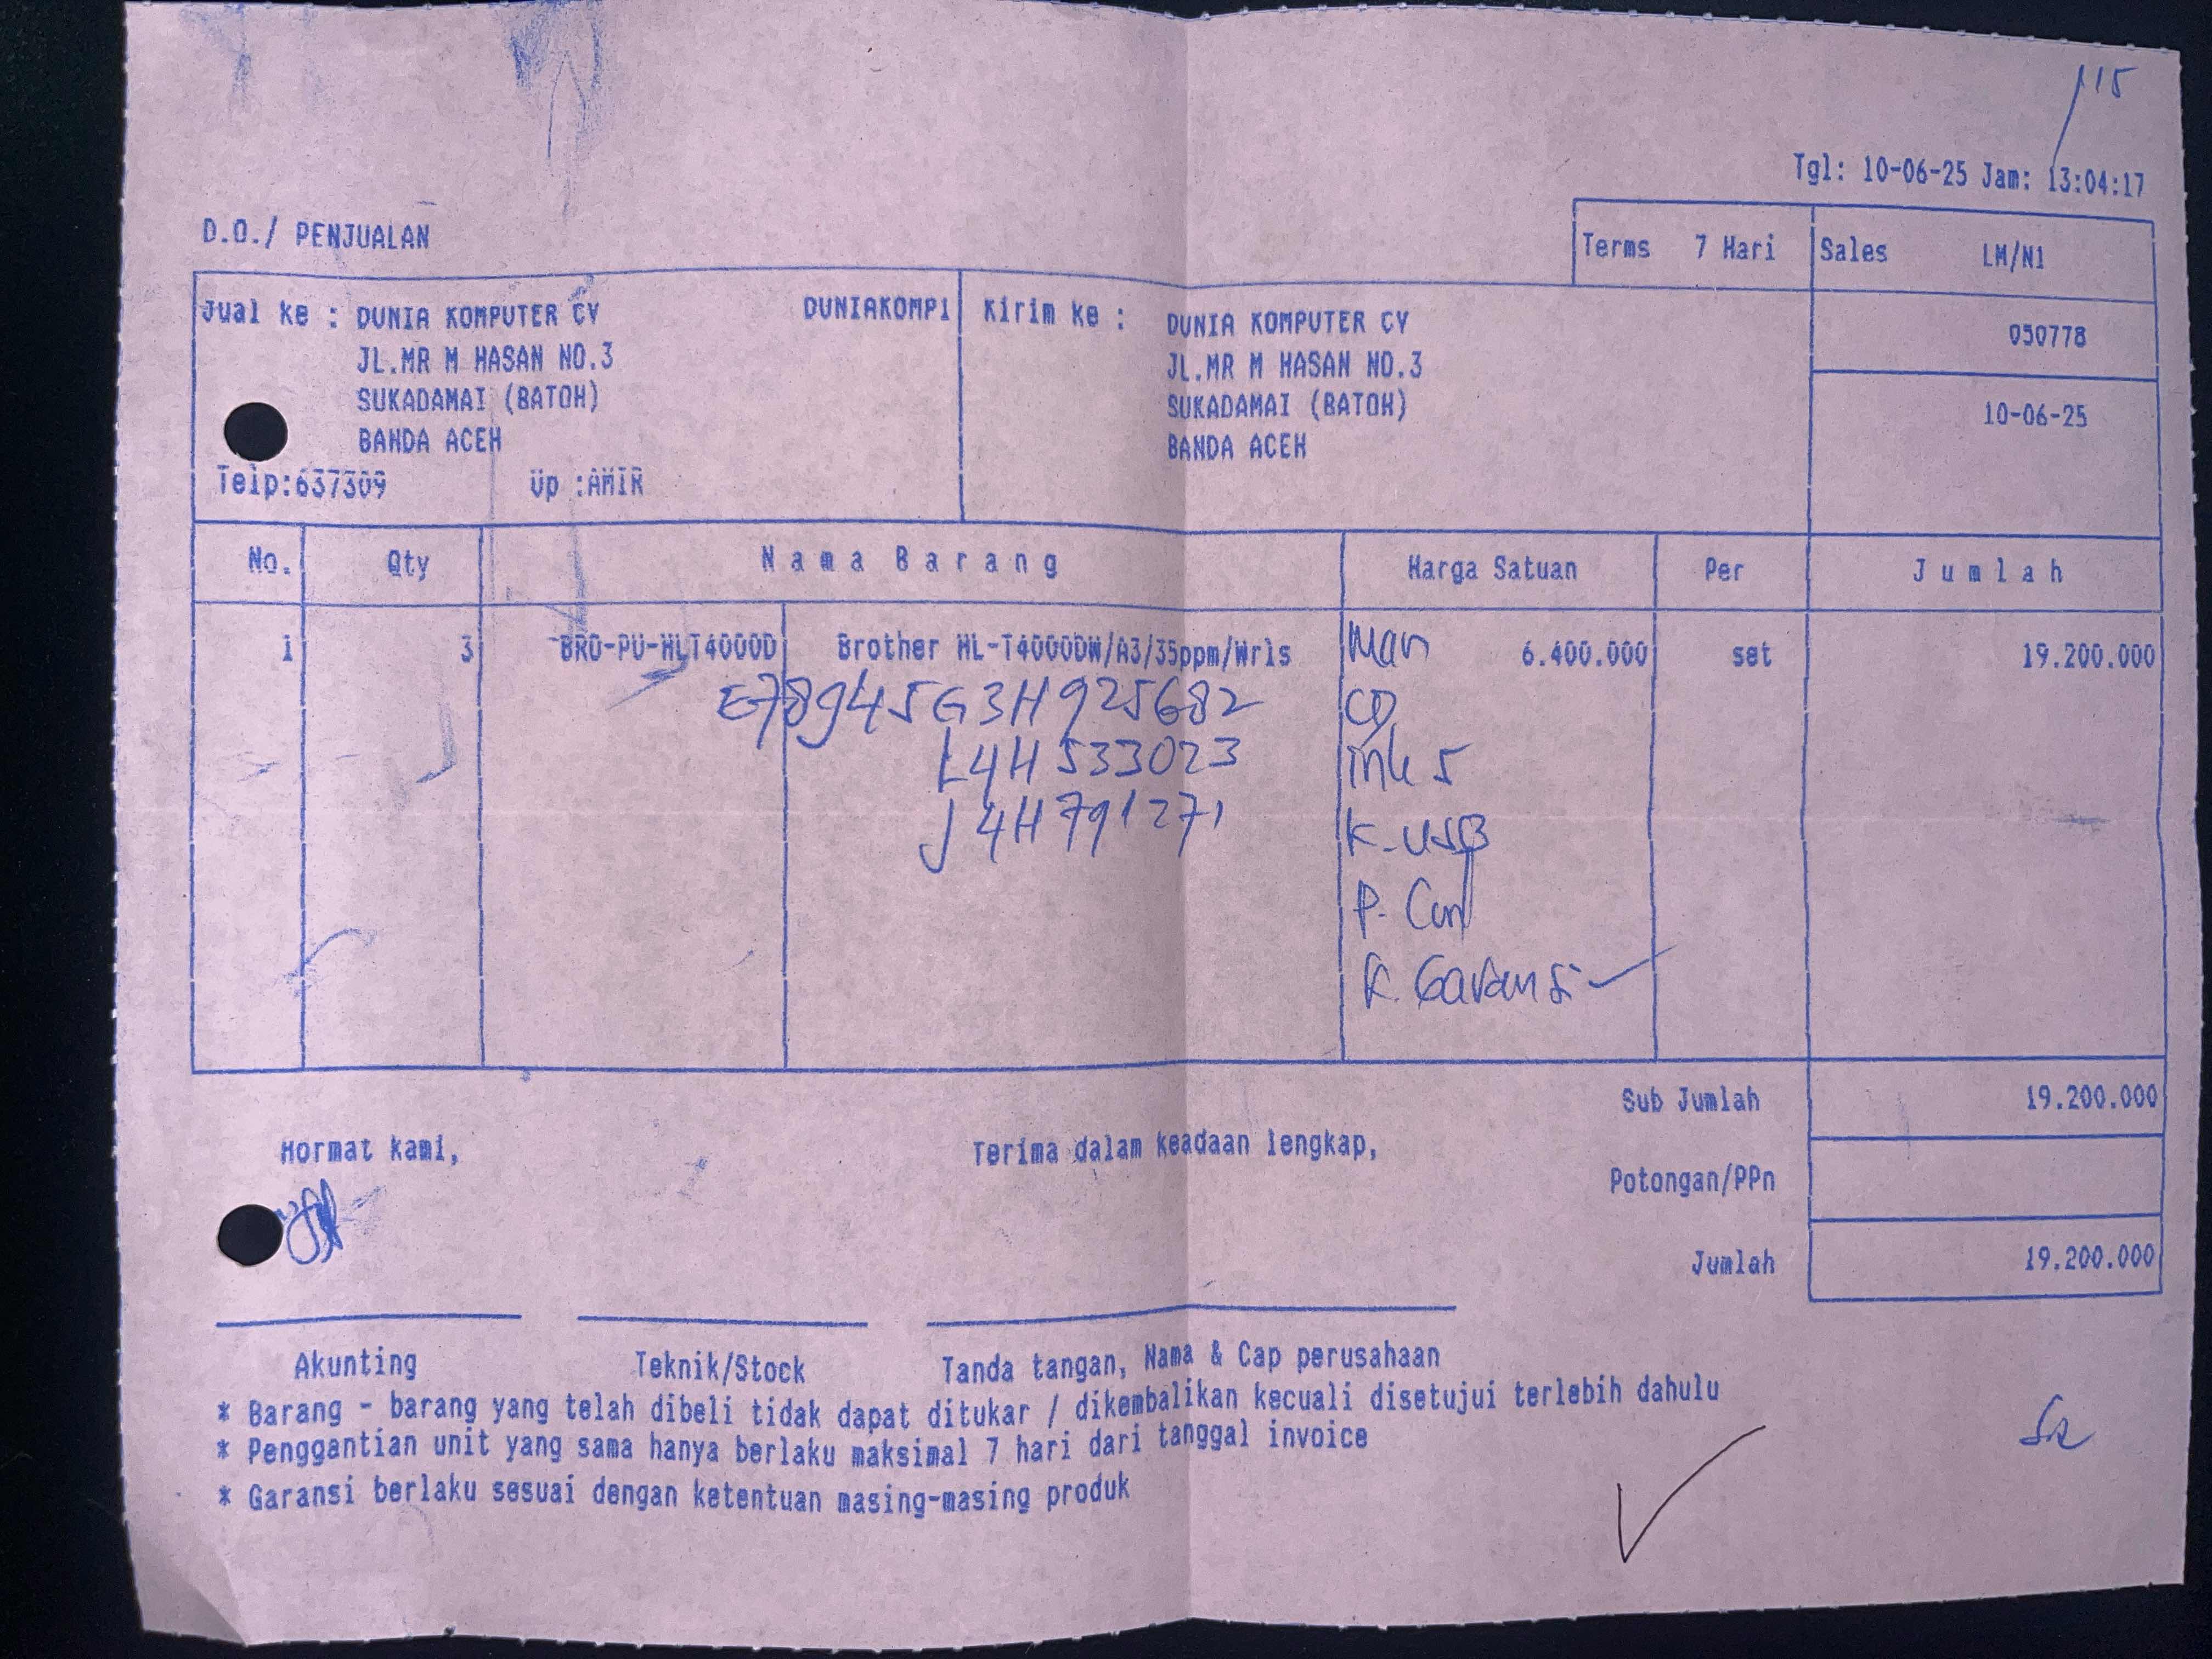 115
Tgl: 10-06-25 Jam: 13:04:17
D.O./ PENJUALAN
Terms 7 Hari Sales LM/N1
Jual ke : DUNIA KOMPUTER CV DUNIAKOMP1 Kirim ke : DUNIA KOMPUTER CV
050778
JL.MR M HASAN NO.3 JL.MR M HASAN NO.3
SUKADAMAI (BATOH) SUKADAMAI (BATOH) 10-06-25
BANDA ACEH BANDA ACEH
Telp:637309 Up :AMIR
No. Qty Nama Barang Harga Satuan Per Jumlah
1 3 BRO-PU-HLT4000D Brother HL-T4000DW/A3/35ppm/Wrls Man 6.400.000 set 19.200.000
E78945G3H925682 CD
L4H533023 ink 5
J4H791271 K. USB
P. Cord
K. Garansi
Sub Jumlah 19.200.000
Hormat kami, Terima dalam keadaan lengkap,
Potongan/PPn
Jumlah 19.200.000
Akunting Teknik/Stock Tanda tangan, Nama & Cap perusahaan
* Barang - barang yang telah dibeli tidak dapat ditukar / dikembalikan kecuali disetujui terlebih dahulu
* Penggantian unit yang sama hanya berlaku maksimal 7 hari dari tanggal invoice
* Garansi berlaku sesuai dengan ketentuan masing-masing produk